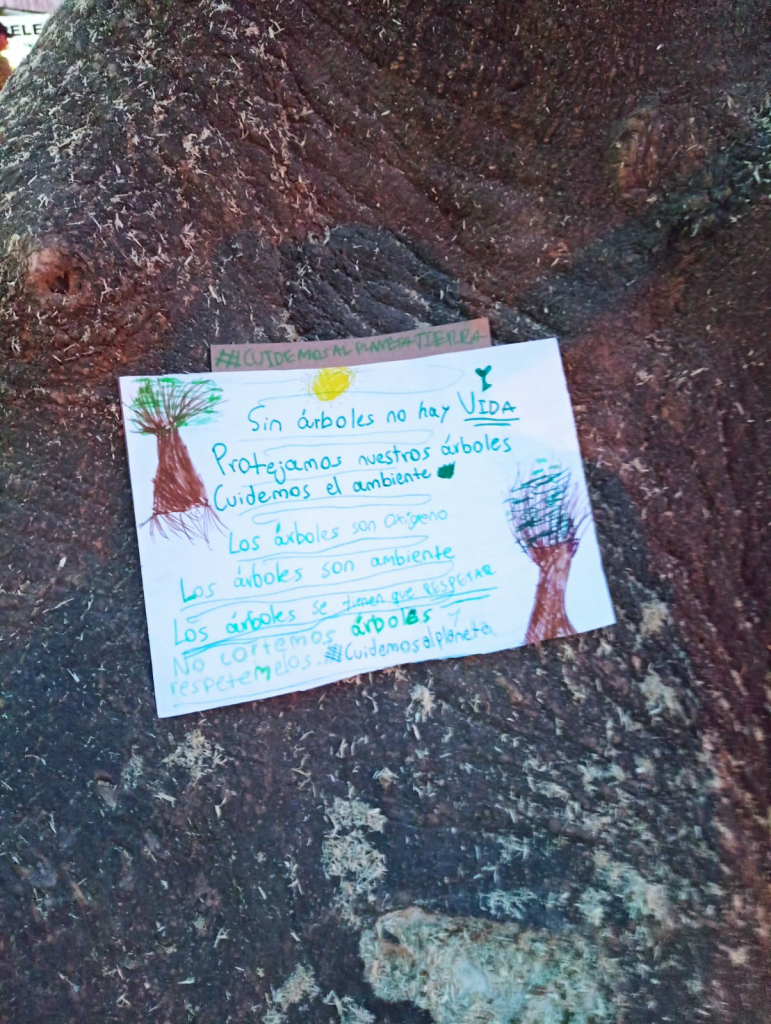 ELE
##CUIDEMOSALPLANETATIERRA
Sin árboles no hay VIDA
Protejamos nuestros árboles
Cuidemos el ambiente
Los árboles son oxígeno
Los árboles son ambiente
Los árboles se tienen que RESPETAR
No cortemos árboles y
respetemelos. #Cuidemosalplaneta